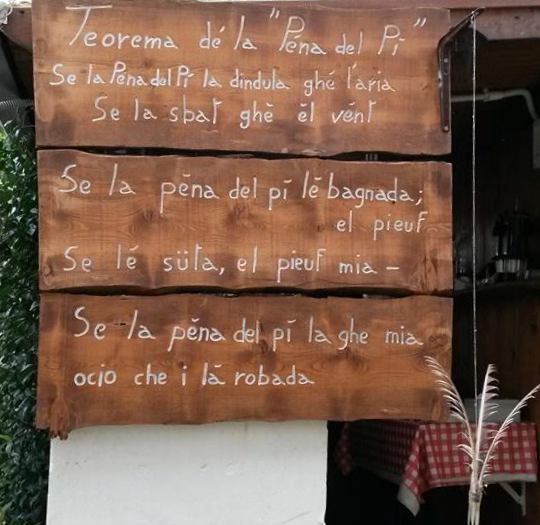 Teorema dé la "Péna del Pí"
Se la Péna del Pí la dindula ghé l'aria
Se la sbat ghĕ ĕl vént
Se la pĕna del pí lĕ bagnada;
el pieuf
Se lé süta, el pieuf mia -
Se la pĕna del pĭ la ghe mia
ocio che i lá robada